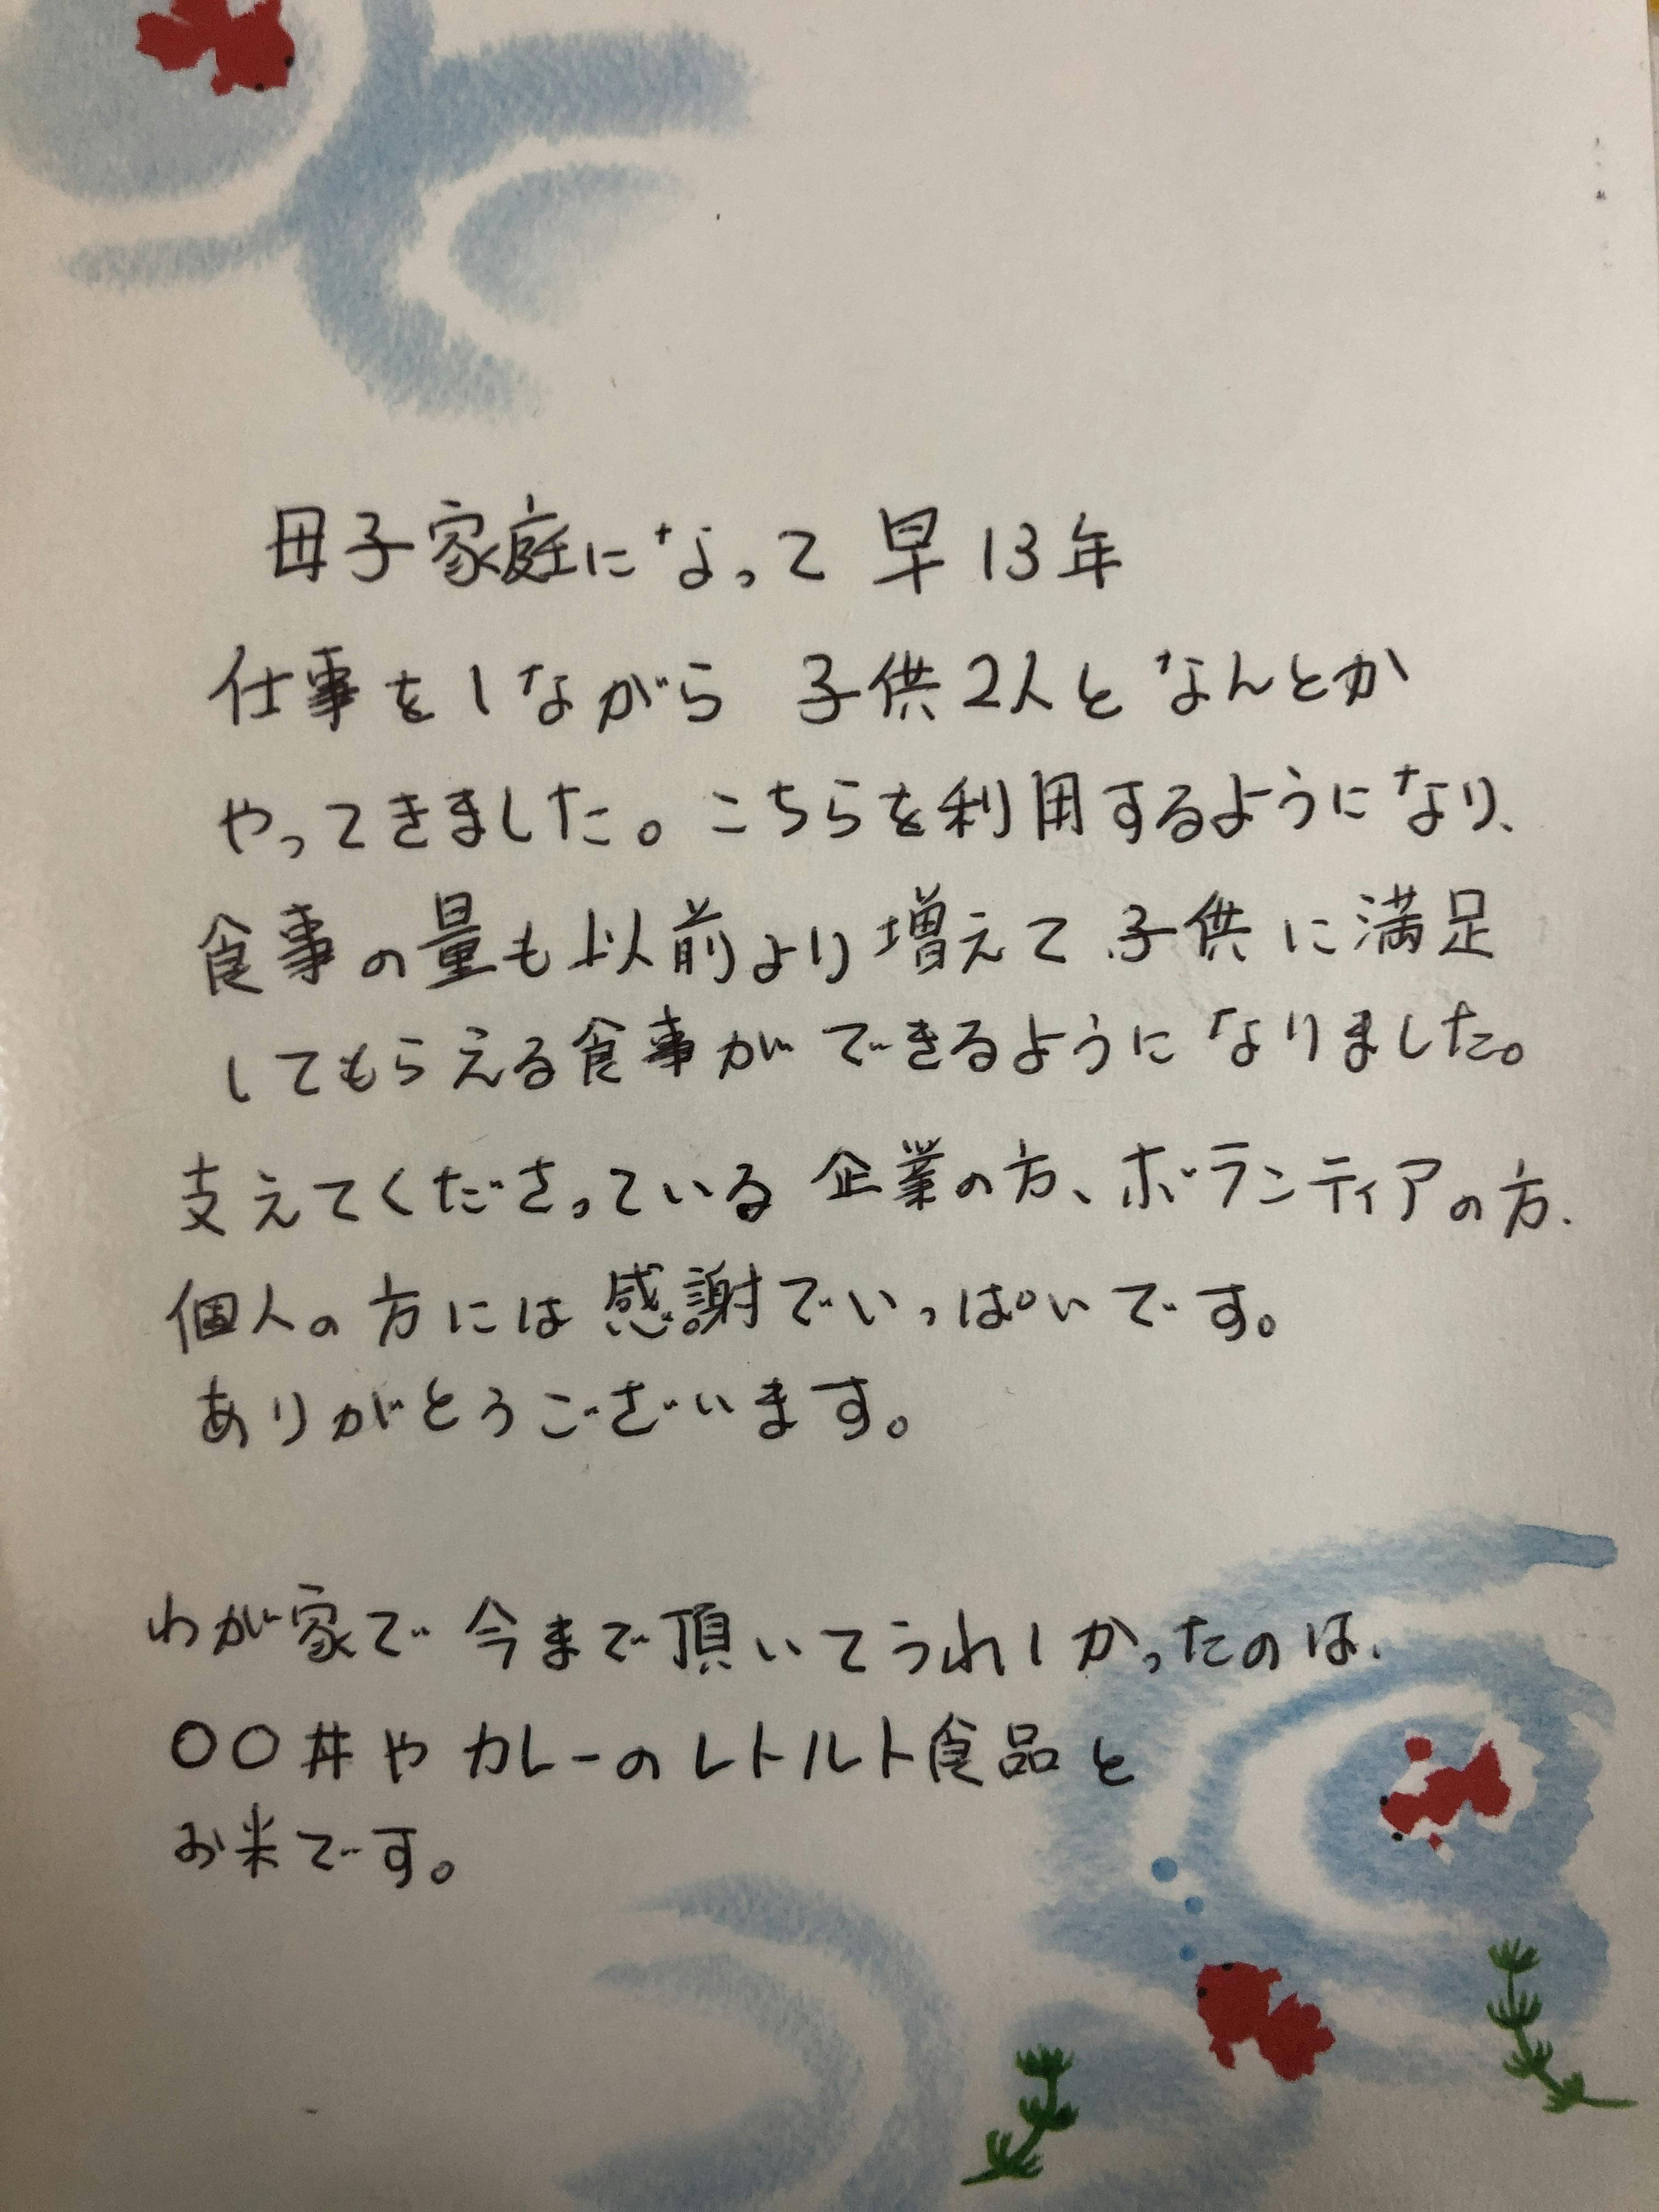 母子家庭になって 早13年
仕事をしながら 子供2人となんとか
やってきました。こちらを利用するようになり、
食事の量も以前より増えて 子供に満足
してもらえる食事ができるようになりました。
支えてくださっている 企業の方、ボランティアの方、
個人の方には感謝でいっぱいです。
ありがとうございます。
わが家で 今まで頂いてうれしかったのは、
〇〇丼や カレーのレトルト食品と
お米です。